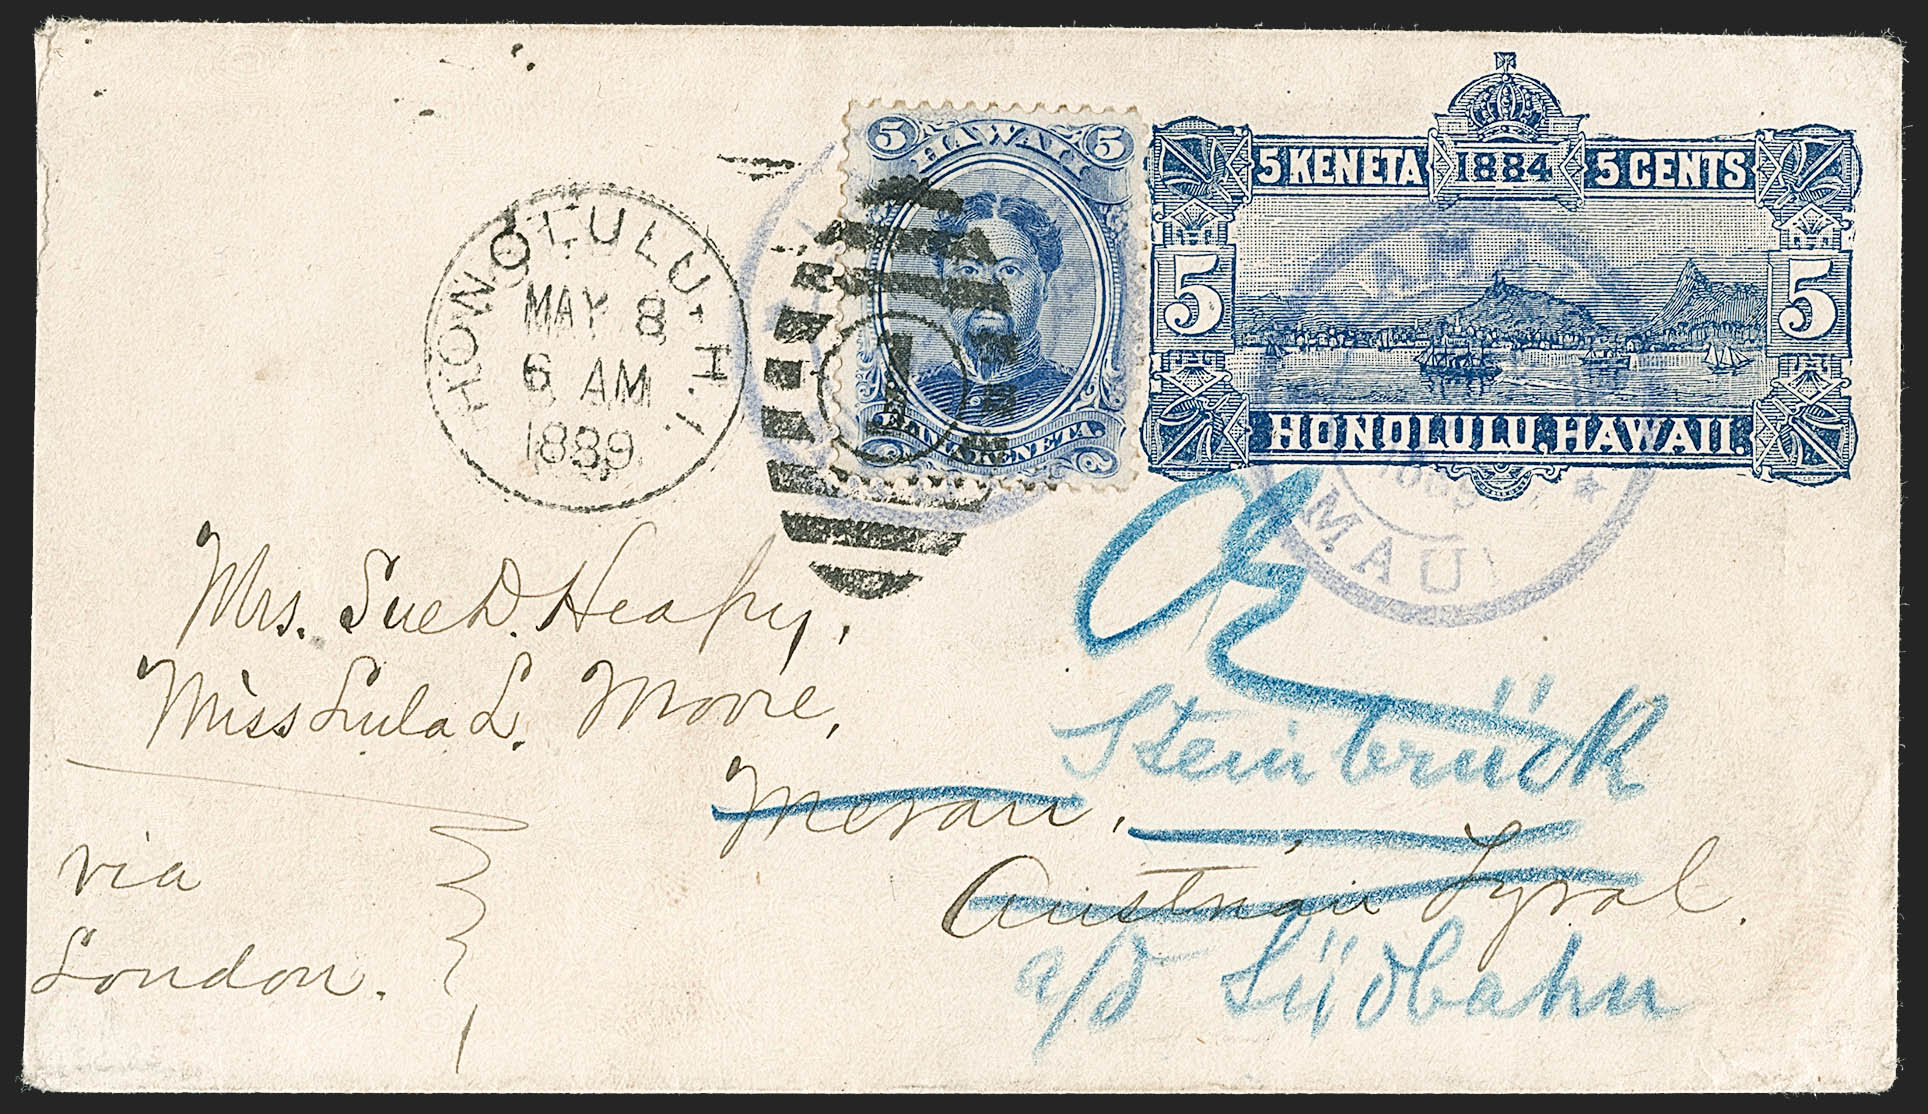 5 KENETA 1884 5 CENTS
5 5
HONOLULU, HAWAII.
5 HAWAII 5
ELIMA KENETA.
HONOLULU. H.I.
MAY 8
6 AM
1889
1
MAUI
Mrs. Sue D. Heapy,
Miss Lula L. Moore,
Meran,
Austrian Tyrol.
via
London.
Steinbrück
a/d Südbahn